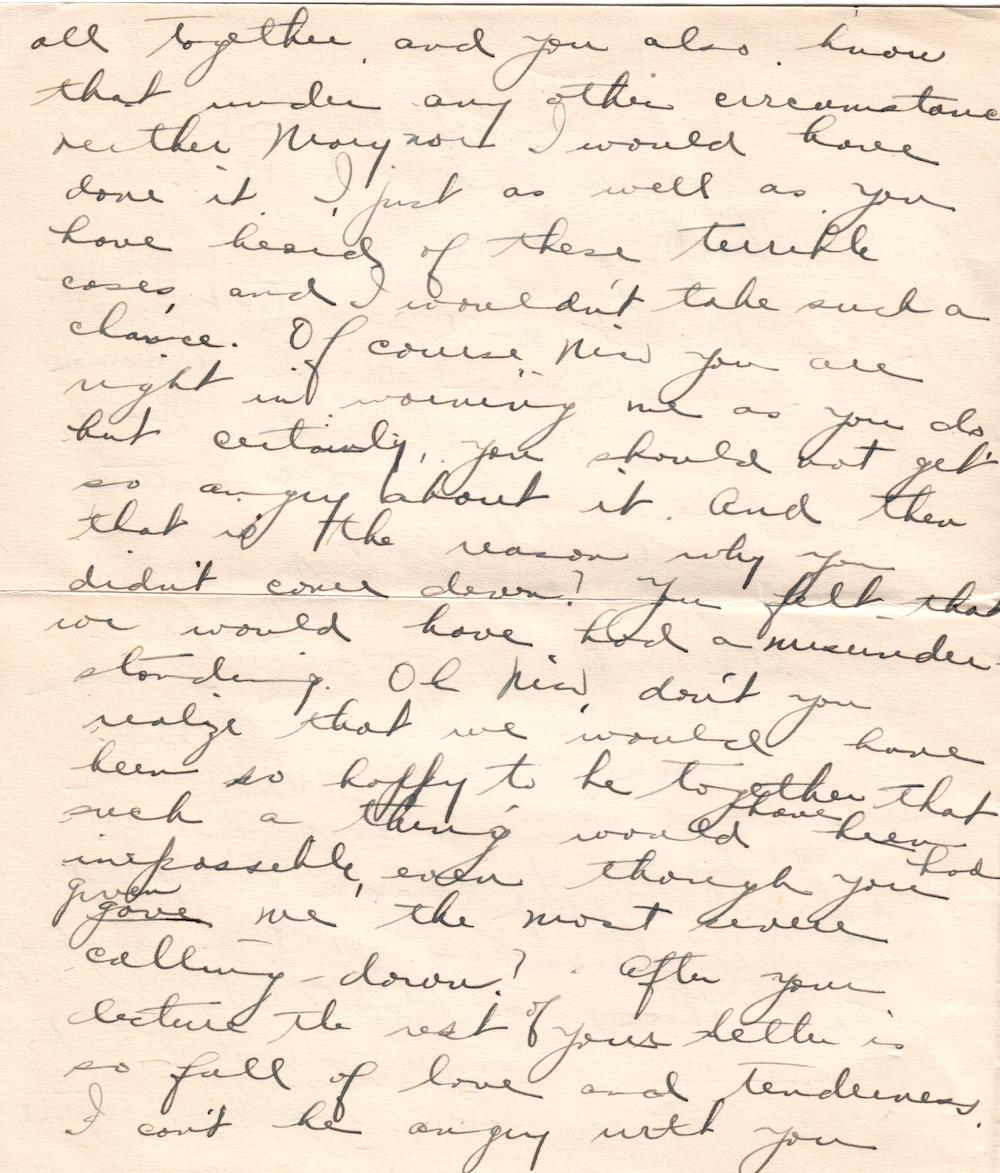 all together and you also know
that under any other circumstance
neither Mary nor I would have
done it. I, just as well as you
have heard of these terrible
cases, and I wouldn't take such a
chance. Of course, you are
right in warning me as you do,
but certainly, you should not get
so angry about it. And then
that is the reason why you
didn't come down? You felt that
we would have had a misunder-
standing. Oh don't you
realize that we would have
been so happy to be together that
such a thing would have been
impossible, even though you had
given
gave me the most severe
calling-down? After your
lecture the rest of your letter is
so full of love and tenderness,
I can't be angry with you